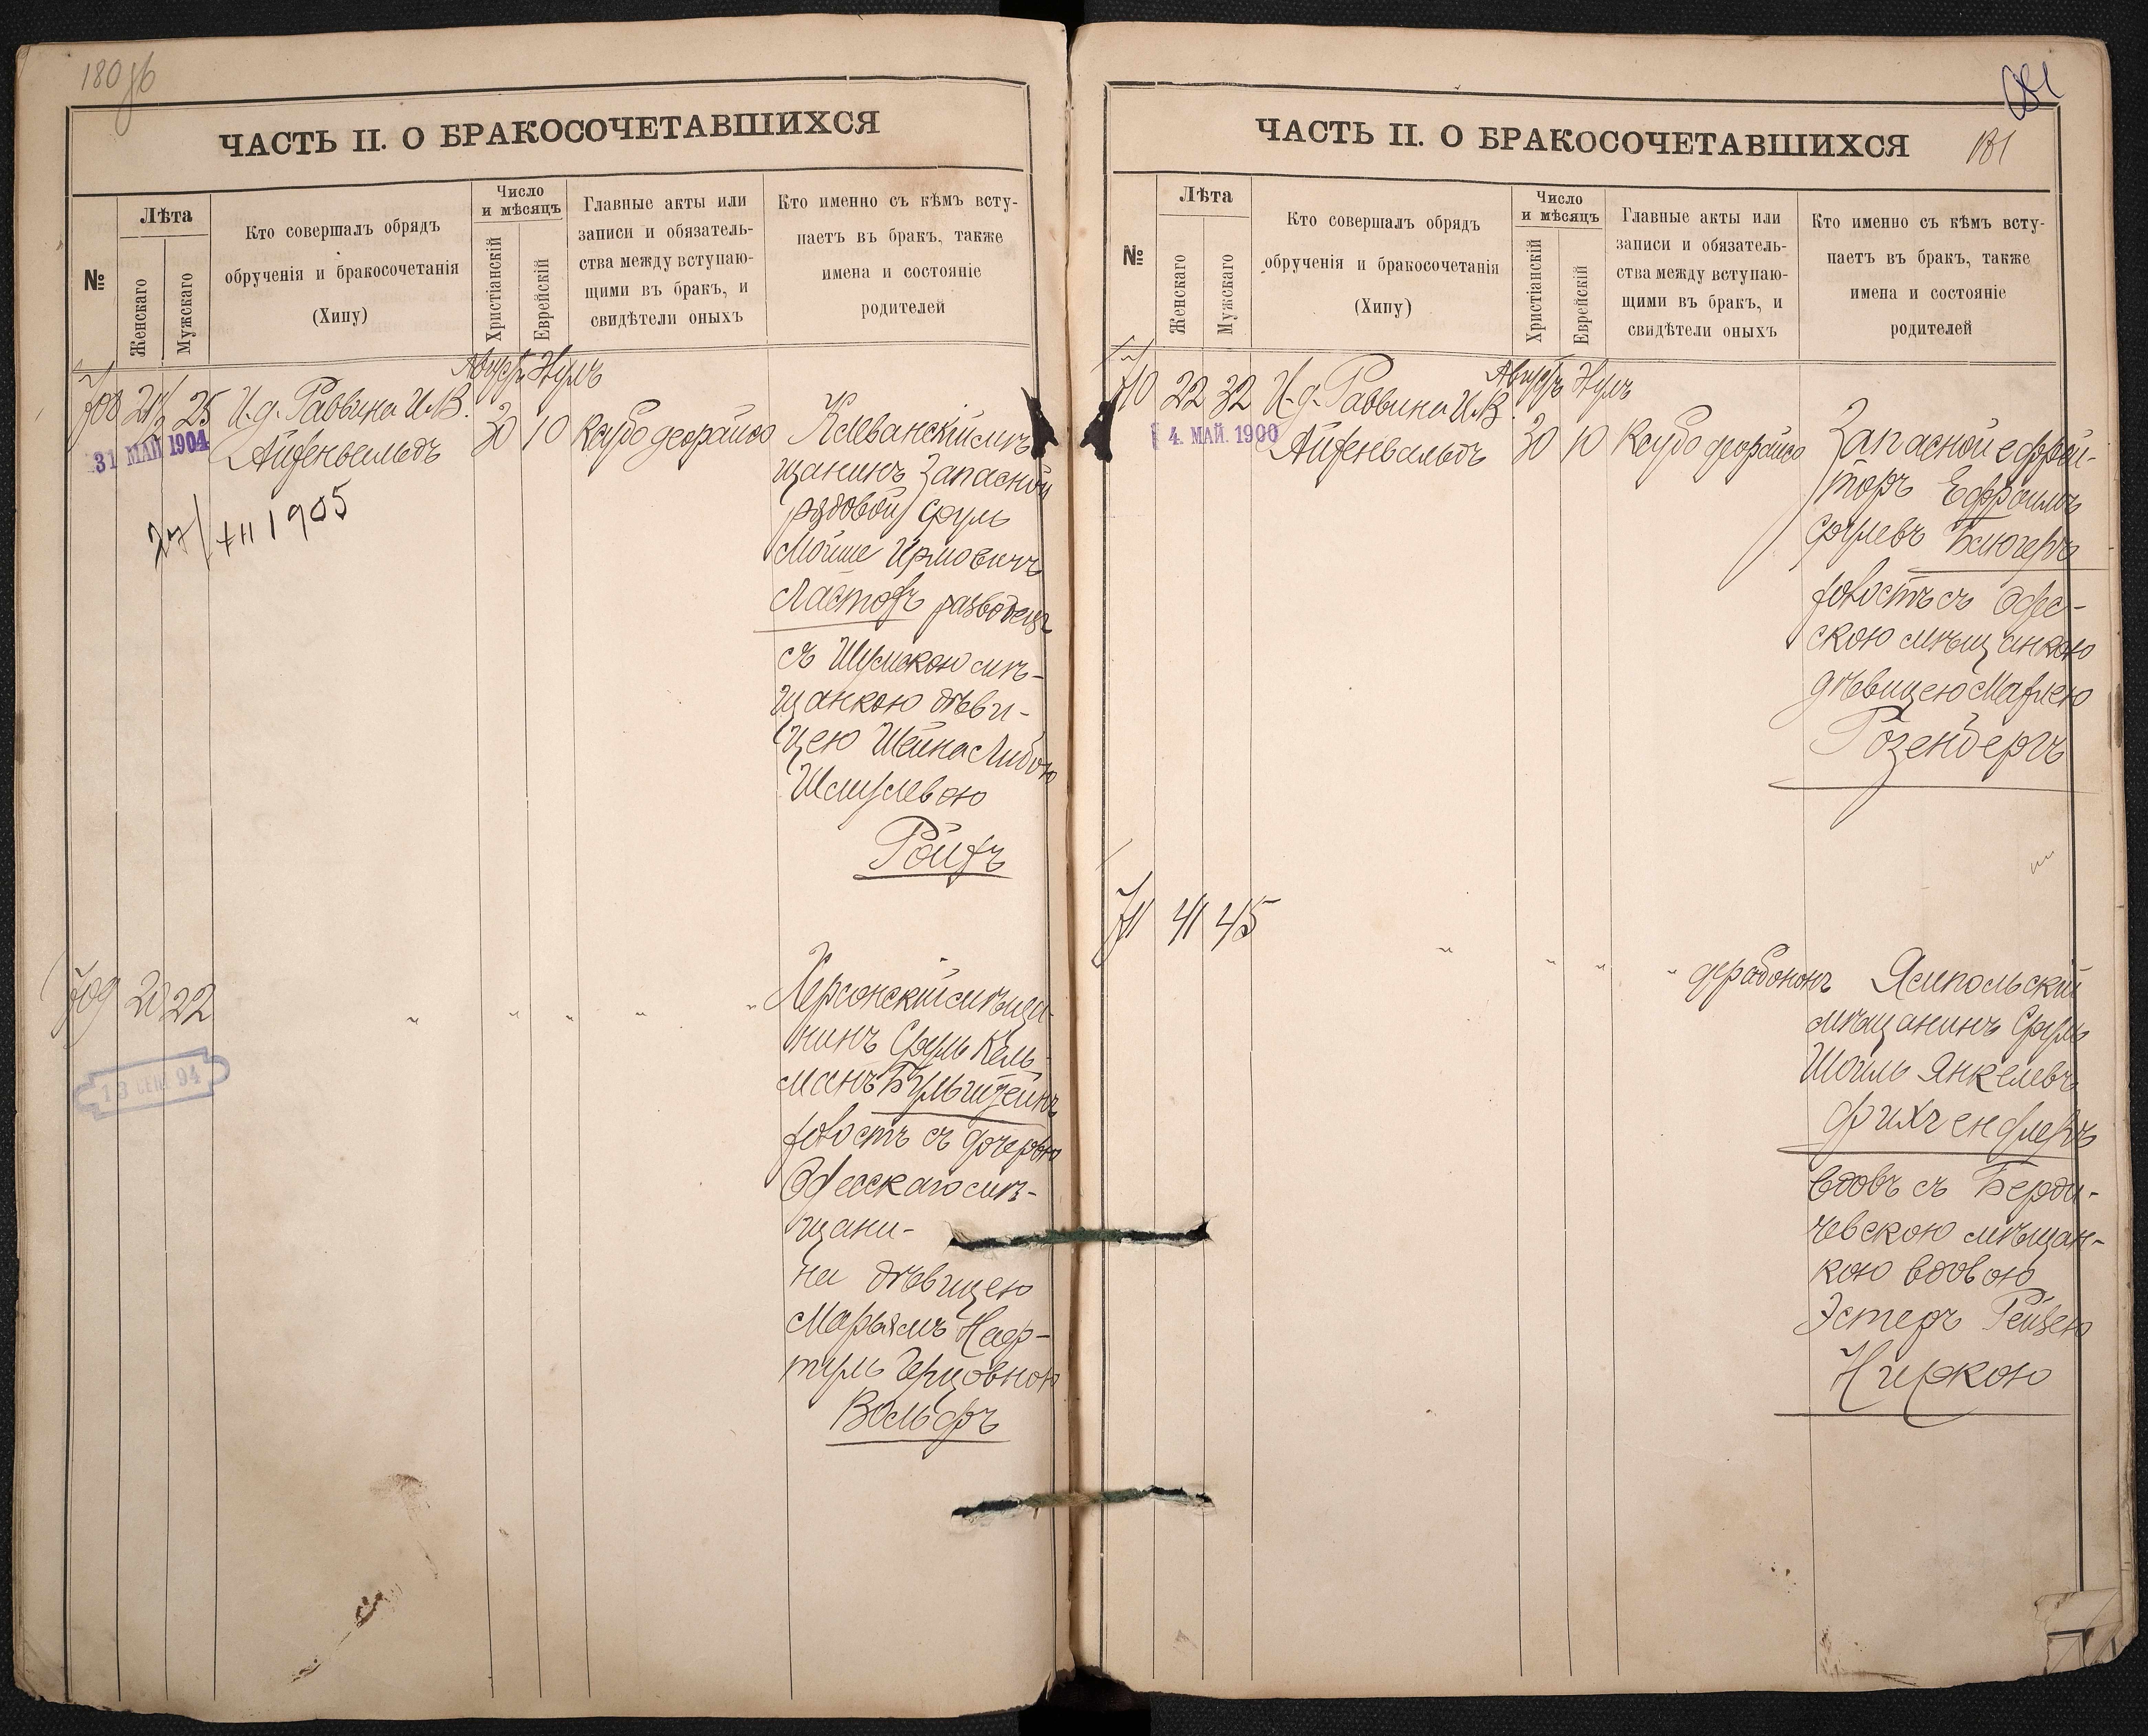 180 об
ЧАСТЬ II. О БРАКОСОЧЕТАВШИХСЯ
№
Лѣта
Женскаго
Мужскаго
Кто совершалъ обрядъ
обрученія и бракосочетанія
(Хипу)
Число
и мѣсяцъ
Христіанскій
Еврейскій
Главные акты или
записи и обязатель-
ства между вступаю-
щими въ бракъ, и
свидѣтели оныхъ
Кто именно съ кѣмъ всту-
паетъ въ бракъ, также
имена и состояніе
родителей
708 21½ 25 И.д. Раввина И.В.
Айзенвальдъ
Августъ
30
10 Ксубо деорайсо
31 МАЙ 1904
1905
Клеванскій мѣ-
щанинъ Запасной
рядовой Сруль
Мойше
разведен
съ Шумскою мѣ-
щанкою дѣви-
цею Шейна Либою
Шмулевою
Ройхъ
709 20 22
" " " " "
13 СЕН. 94
Херсонскій мѣща-
нинъ Сруль Кель-
манъ
холостъ съ дочерью
Одесскаго мѣ-
щани-
на дѣвицею
Марьямъ Неф-
тулъ Герцовною
Вольфъ
181
ЧАСТЬ II. О БРАКОСОЧЕТАВШИХСЯ
№
Лѣта
Женскаго
Мужскаго
Кто совершалъ обрядъ
обрученія и бракосочетанія
(Хипу)
Число
и мѣсяцъ
Христіанскій
Еврейскій
Главные акты или
записи и обязатель-
ства между вступаю-
щими въ бракъ, и
свидѣтели оныхъ
Кто именно съ кѣмъ всту-
паетъ въ бракъ, также
имена и состояніе
родителей
710 22 32 И.д. Раввина И.В.
Айзенвальдъ
Августъ
30
10 Ксубо деорайсо
4. МАЙ. 1900
Запасной ефрей-
торъ Ефроимъ
Срулевъ Блюгеръ
холостъ съ Одес-
скою мѣщанкою
дѣвицею Малею
Розенбергъ
711 41 45
" " " " дерабононъ
Ямпольскій
мѣщанинъ Сруль
Шоилъ Янкелевъ
вдовъ съ Берди-
чевскою мѣщан-
кою вдовою
Эстеръ Рейзею